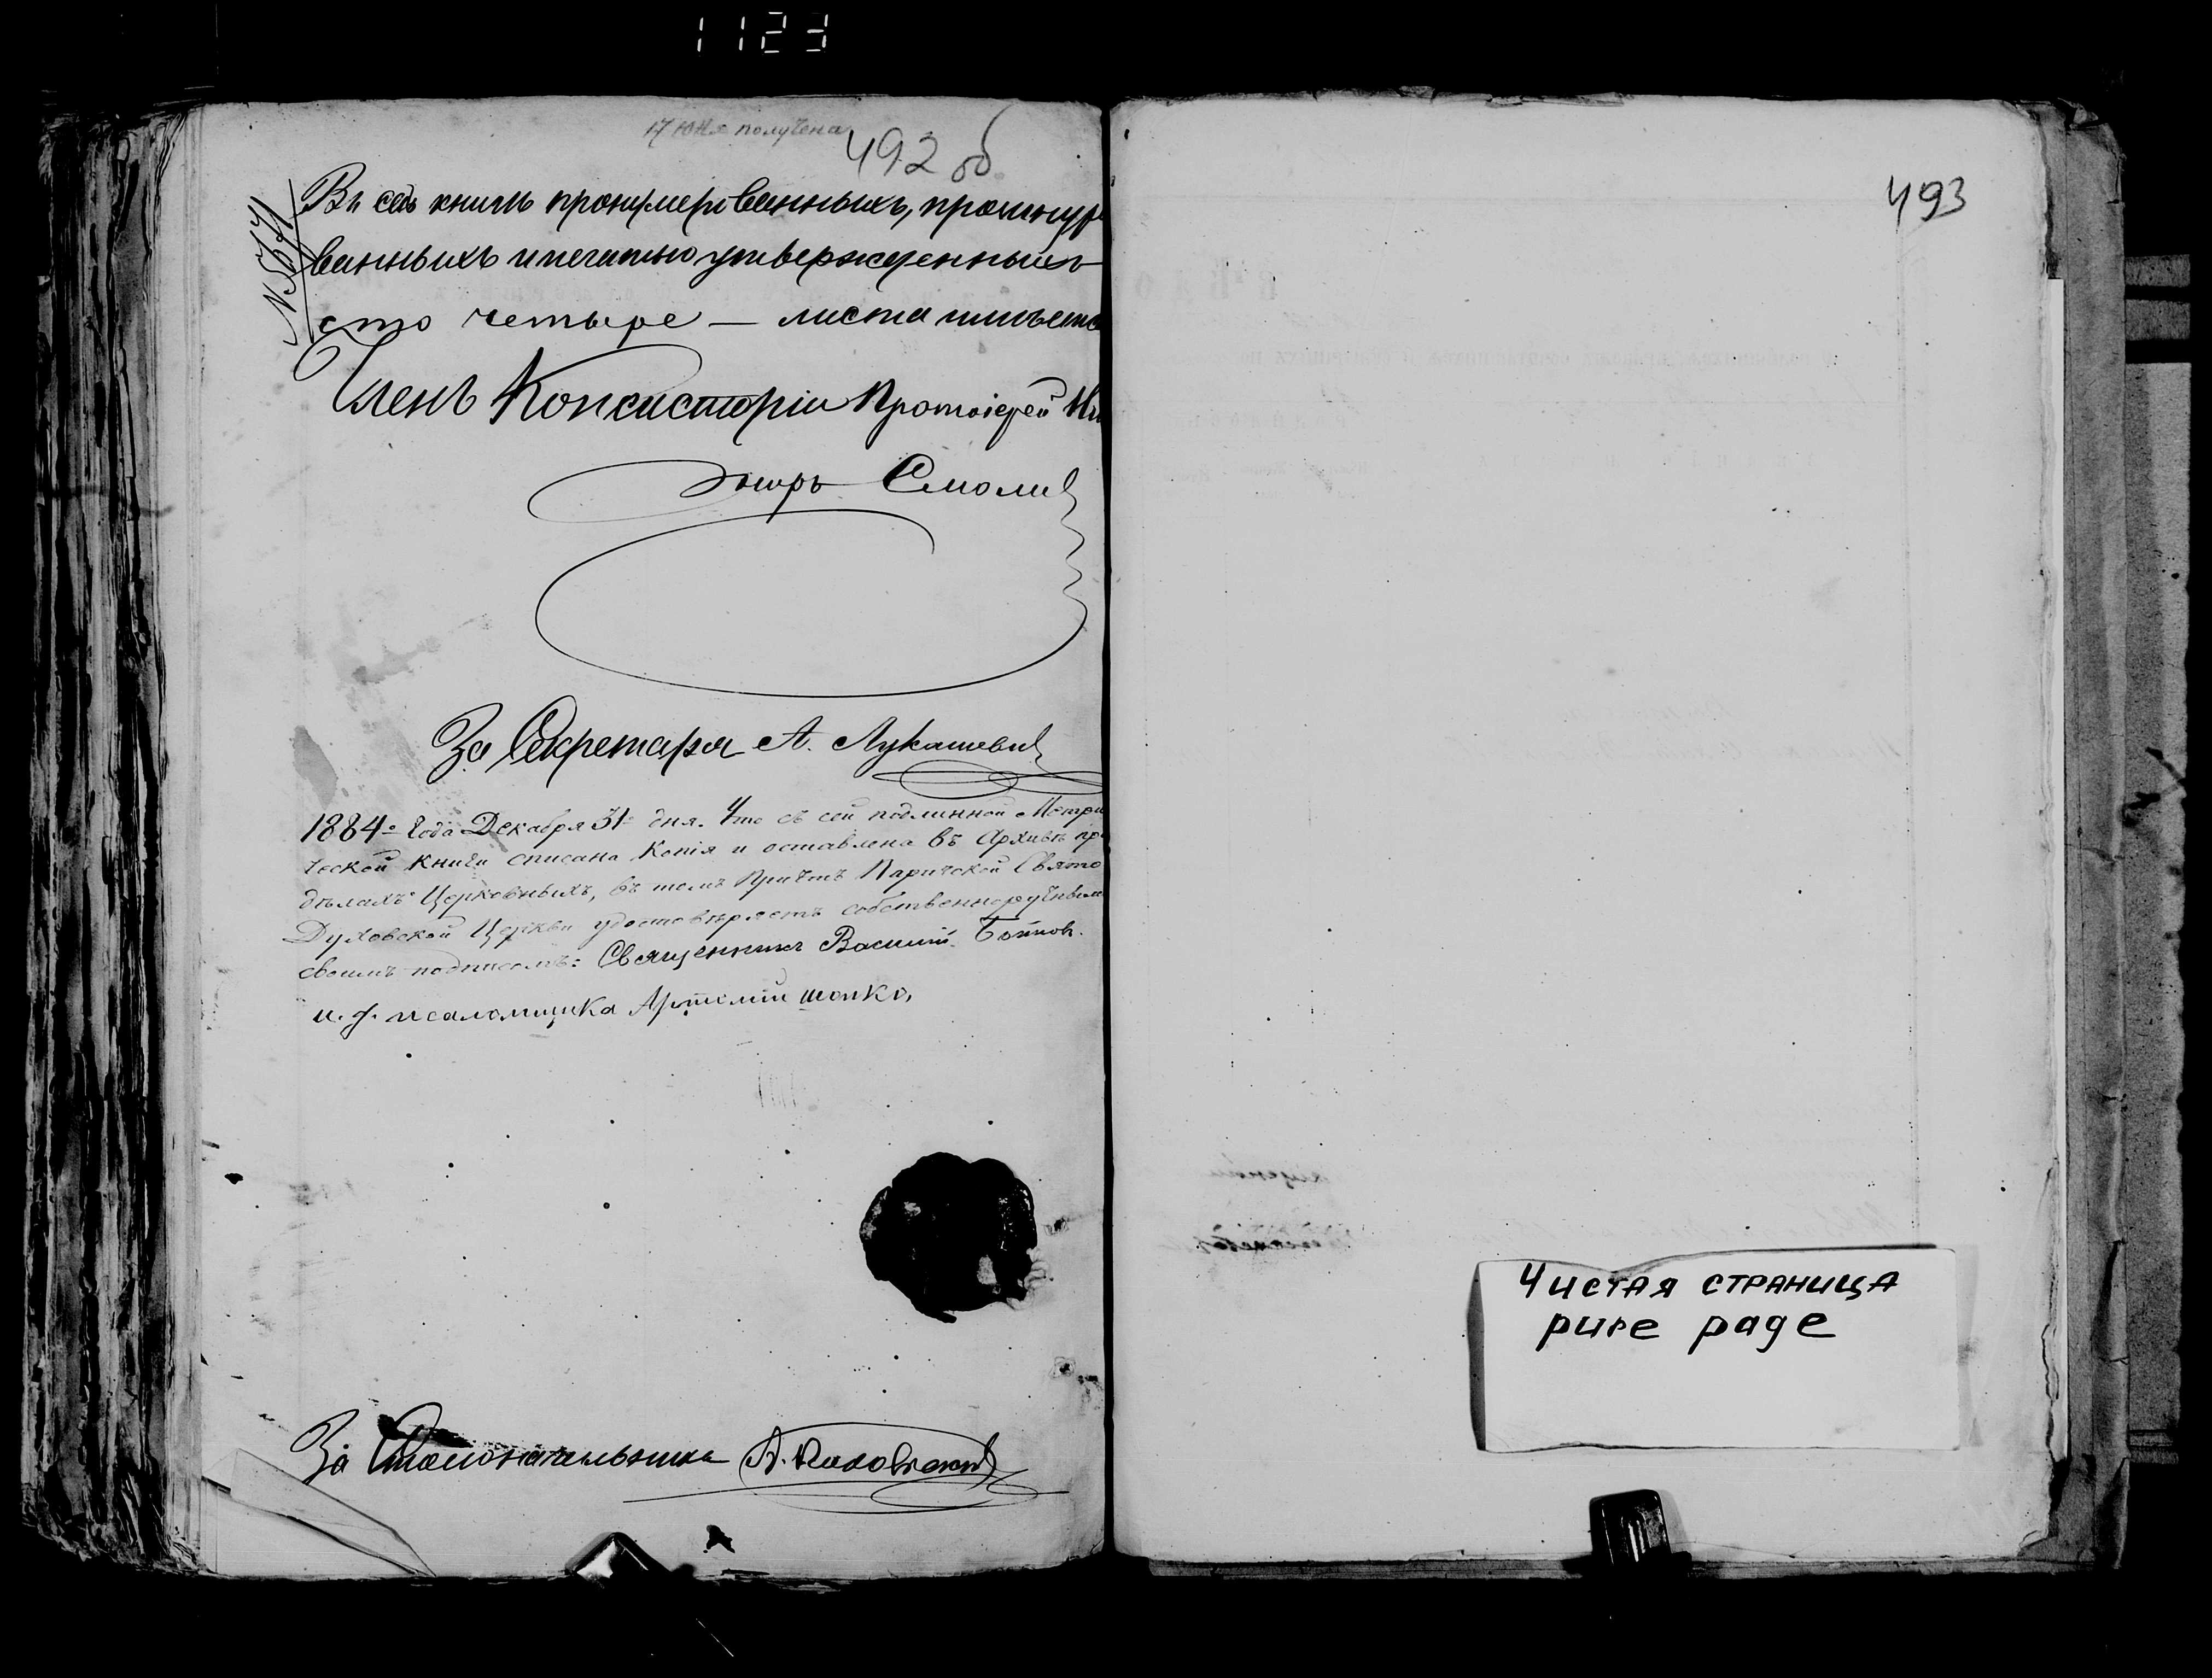 1123
17 Юня получена
492 об
Въ сей книгѣ пронумерованныхъ, прошнуро
ванныхъ и печатью утвержденныхъ
сто четыре — листа имѣетс
Членъ Консисторіи Протоіерей
Смолич
За Секретаря А. Лукашевич
1884 года Декабря 31 дня. Что съ сей подлинной Метри
ческой книги списана Копія и оставлена въ Архивѣ пр
дѣлахъ Церковныхъ, въ томъ Причтъ Паричской Свято
Духовской Церкви удостовѣряетъ собственноручнымъ
своимъ подписомъ: Священникъ Василій
и. д. псаломщика Артемій
За Столоначальника А.
493
Чистая страница
pure page